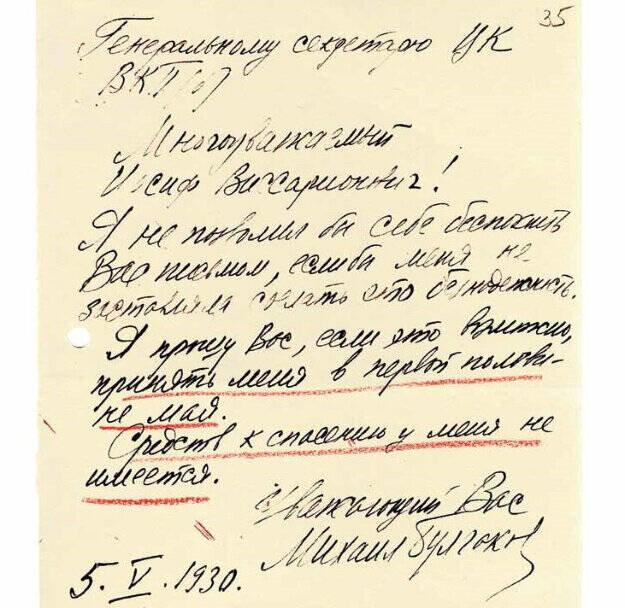 35
Генеральному секретарю ЦК
ВКП(б)
Многоуважаемый
Иосиф Виссарионович!
Я не позволил бы себе беспокоить
Вас письмом, если бы меня не
заставляла сделать это бедность.
Я прошу Вас, если это возможно,
принять меня в первой полови-
не мая.
Средств к спасению у меня не
имеется.
Уважающий Вас
Михаил Булгаков
5. V. 1930.